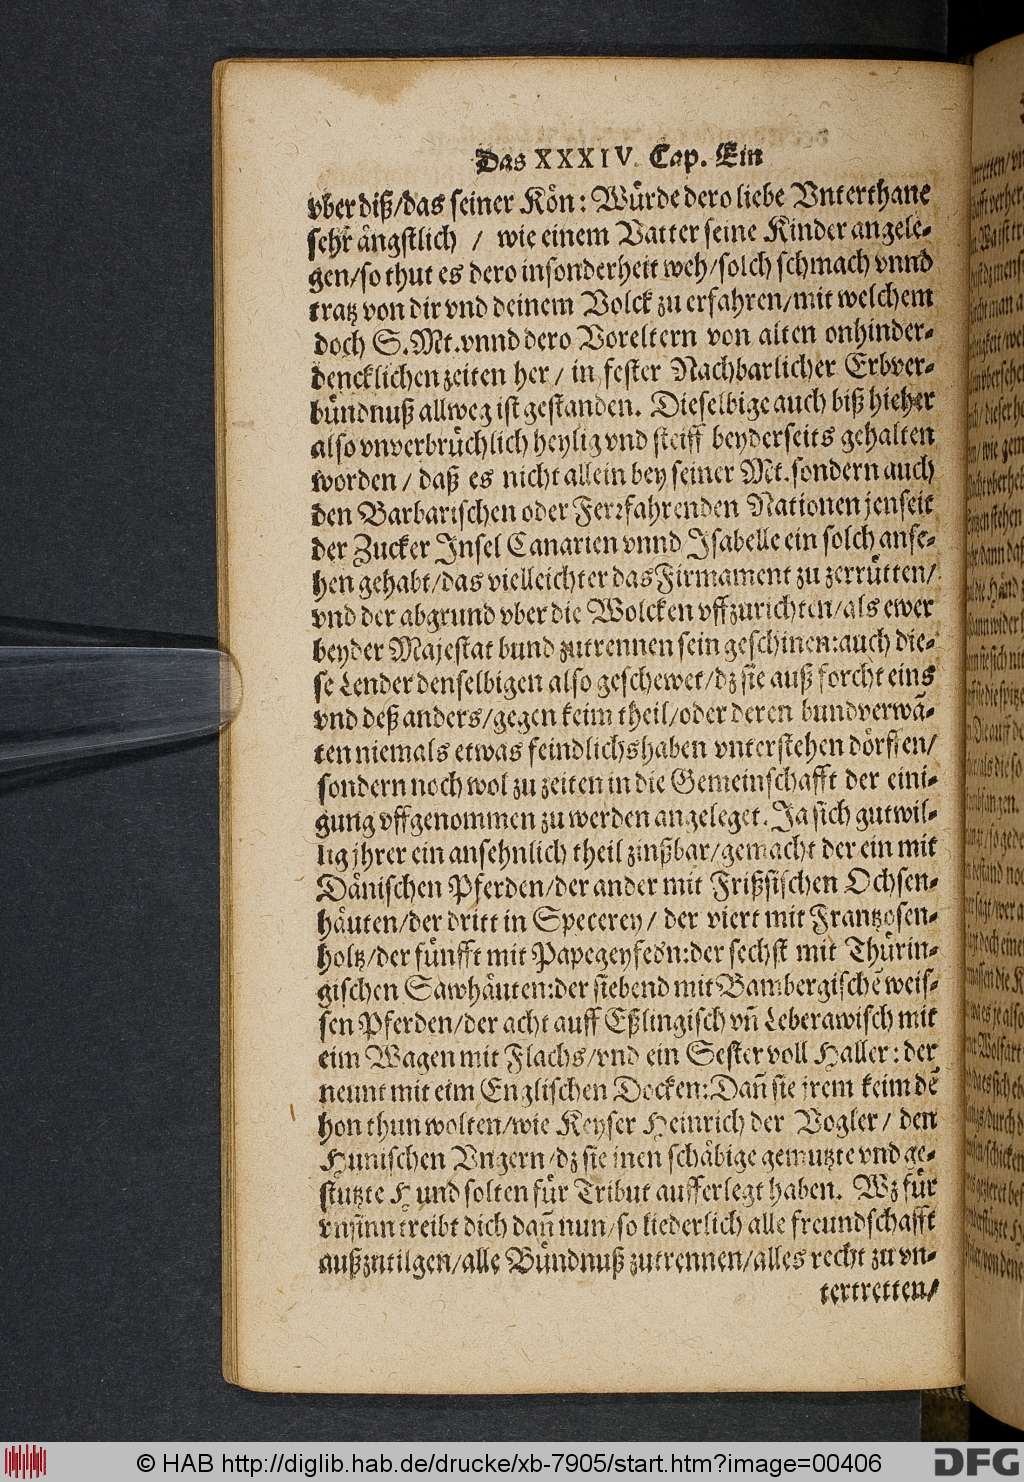 Das XXXIV. Cap. Ein
vber diß/das seiner Kön: Würde dero liebe Vnterthane
sehr ängstlich / wie einem Vatter seine Kinder angele-
gen/so thut es dero insonderheit weh/solch schmach vnnd
tratz von dir vnd deinem Volck zu erfahren/mit welchem
doch S.Mt.vnnd dero Voreltern von alten onhinder-
dencklichen zeiten her / in fester Nachbarlicher Erbver-
bündnuß allweg ist gestanden. Dieselbige auch biß hieher
also vnverbrüchlich heylig vnd steiff beyderseits gehalten
worden / daß es nicht allein bey seiner Mt.sondern auch
den Barbarischen oder Ferꝛfahrenden Nationen jenseit
der Zucker Insel Canarien vnnd Isabelle ein solch anse-
hen gehabt/das vielleichter das Firmament zu zerrütten/
vnd der abgrund vber die Wolcken vffzurichten/als ewer
beyder Majestat bund zutrennen sein geschinen:auch die-
se Lender denselbigen also geschewet/dz sie auß forcht eins
vnd deß anders/gegen keim theil/oder deren bundverwā-
ten niemals etwas feindlichs haben vnterstehen dörffen/
sondern noch wol zu zeiten in die Gemeinschafft der eini-
gung vffgenommen zu werden angeleget. Ja sich gutwil-
lig jhrer ein ansehnlich theil zinßbar/gemacht der ein mit
Dänischen Pferden/der ander mit Frißsischen Ochsen-
häuten/der dritt in Specerey / der viert mit Frantzosen-
holtz/der fünfft mit Papegeyfedn:der sechst mit Thürin-
gischen Sawhäuten:der siebend mit Bambergischē weis-
sen Pferden/der acht auff Eßlingisch vn̄ Leberawisch mit
eim Wagen mit Flachs/vnd ein Sester voll Haller: der
neunt mit eim Englischen Docken:Dan̄ sie jrem keim dē
hon thun wolten/wie Keyser Heinrich der Vogler / den
Hunischen Vngern/dz sie inen schäbige gemutzte vnd ge-
stutzte Hund solten für Tribut aufferlegt haben. Wz für
vnsinn treibt dich dan̄ nun/so liederlich alle freundschafft
außzutilgen/alle Bündnuß zutrennen/alles recht zu vn-
tertretten/
© HAB http://diglib.hab.de/drucke/xb-7905/start.htm?image=00406
DFG